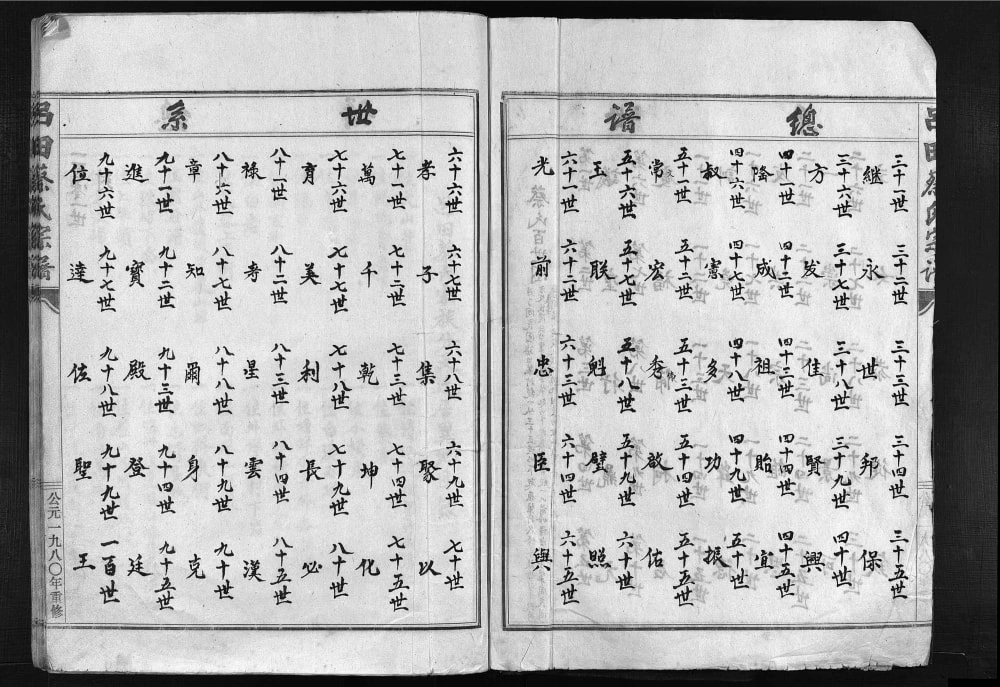 總譜
呂田蔡氏宗譜
三十一世 三十二世 三十三世 三十四世 三十五世
繼 永 世 邦 保
三十六世 三十七世 三十八世 三十九世 四十世
方 发 佳 賢 興
四十一世 四十二世 四十三世 四十四世 四十五世
隆 成 祖 貽 宜
四十六世 四十七世 四十八世 四十九世 五十世
叔 憲 多 功 振
五十一世 五十二世 五十三世 五十四世 五十五世
常 宏 秀 啟 佑
五十六世 五十七世 五十八世 五十九世 六十世
玉 联 魁 璧 照
六十一世 六十二世 六十三世 六十四世 六十五世
光 前 忠 臣 與
世系
六十六世 六十七世 六十八世 六十九世 七十世
孝 子 集 聚 以
七十一世 七十二世 七十三世 七十四世 七十五世
萬 千 乾 坤 化
七十六世 七十七世 七十八世 七十九世 八十世
育 美 利 長 必
八十一世 八十二世 八十三世 八十四世 八十五世
祿 寿 星 雲 漢
八十六世 八十七世 八十八世 八十九世 九十世
章 知 爾 身 克
九十一世 九十二世 九十三世 九十四世 九十五世
進 寶 殿 登 廷
九十六世 九十七世 九十八世 九十九世 一百世
位 達 佐 聖 王
呂田蔡氏宗譜
公元一九八〇年重修